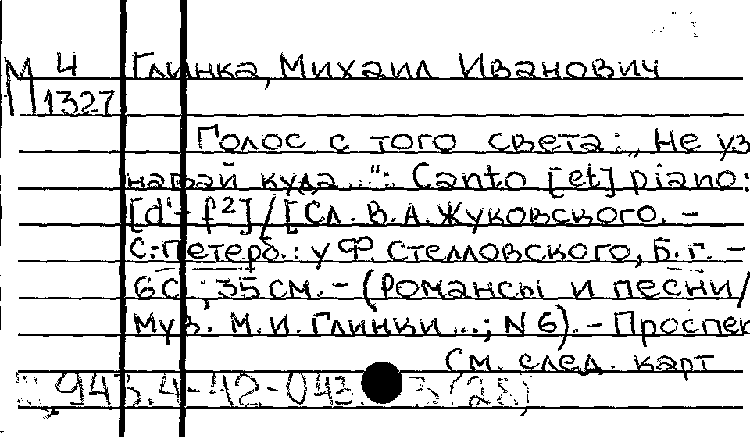 М 4 Глинка, Михаил Иванович
1327
Голос с того света: „Не уз
навай куда...": Canto [et] piano:
[d¹-f²]/[Сл. В.А. Жуковского. -
С.-Петерб.: у Ф. Стелловского, Б.г. -
6с.; 35 см. - (Романсы и песни/
Муз. М.И. Глинки...; N 6). - Проспек
См. след. карт
943.4-42-043